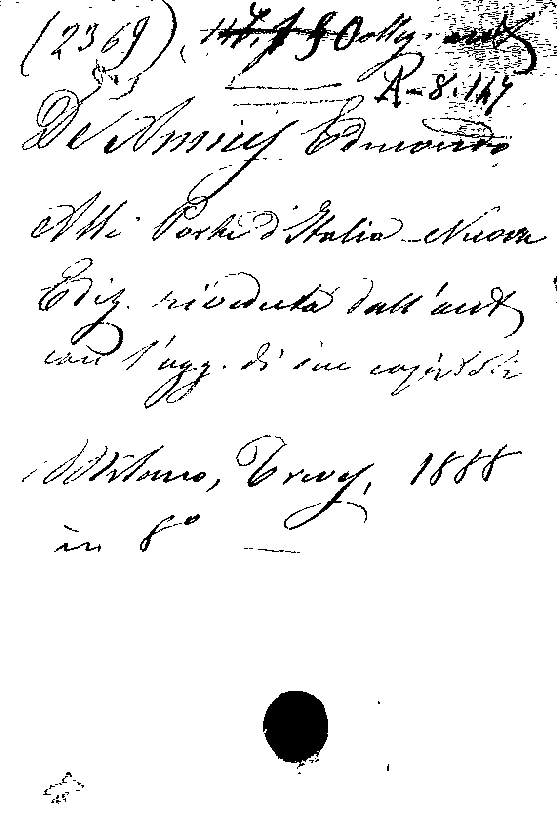 (2369)
R-8.147
De Amicis Edmondo
Alle Porte d'Italia - Nuova
Ediz. riveduta dall'aut
con l'agg. di due capitoli
Milano, Treves, 1888
in 8º